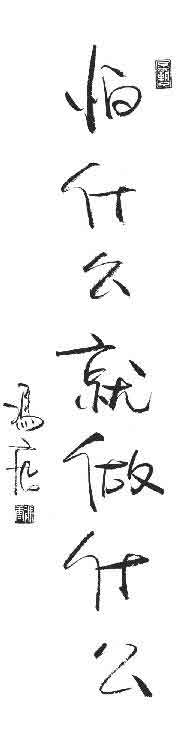 怕什么就做什么